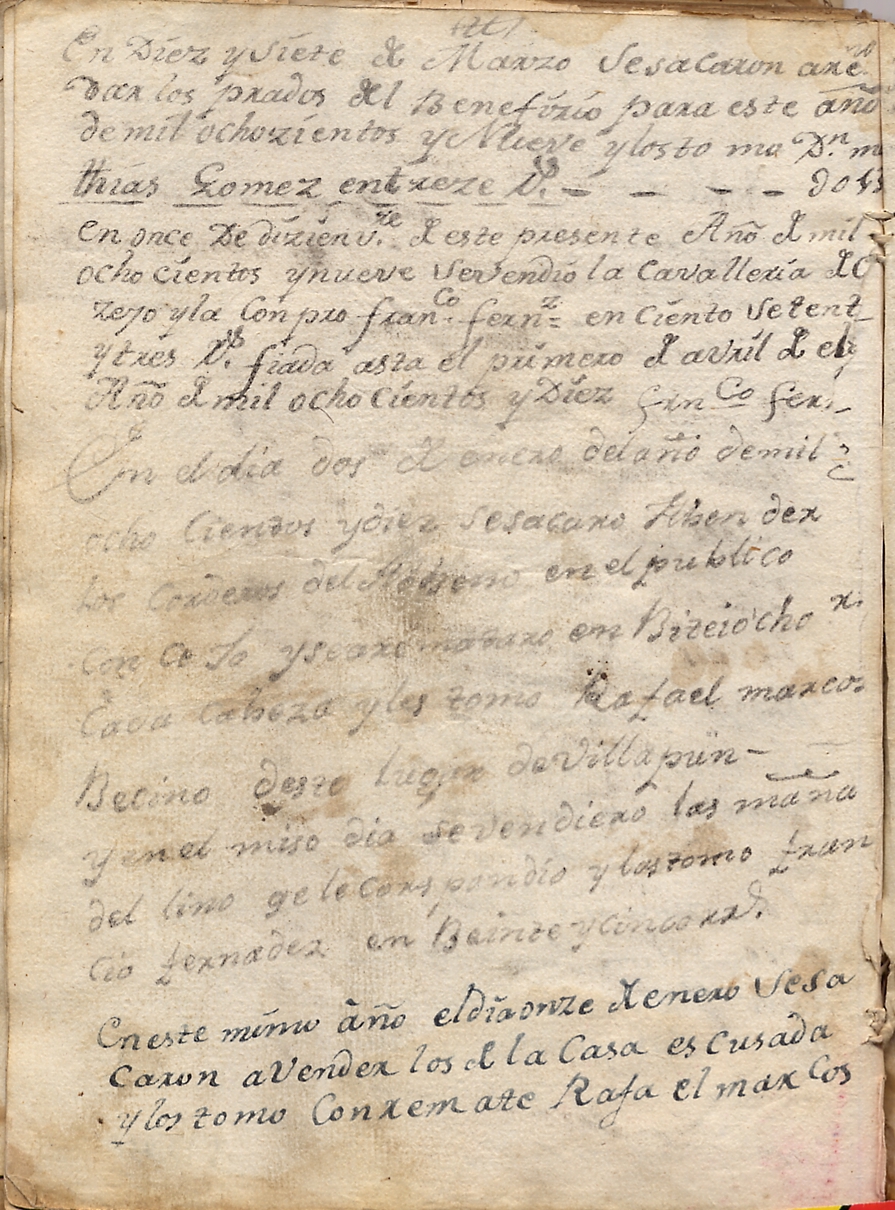 En Diez y Siete de Marzo Se sacaron aRe
dar los prados del Benefizio para este año
de mil ochozientos y Nueve y los to mo Dn. ma
thias Gomez en treze Ds. — — — — do 13
En once De dizienv.re de este presente Año de mil
ocho cientos y nueve Se vendio la Cavalleria del C
zejo y la Con pro franco. fernz. en Ciento Setent
y tres Ds. fiada asta el primero de avril de el
Año de mil ocho Cientos y Diez frnco fer
En el dia dos de enero del año de mil
ocho Cientos y diez se sacaro Aben der
los Corderos del en el publico
Con Ce Jo y se aremataro en Biteiocho r.
Cada Cabeza y les tomo Rafael marcos
Becino desto lugar de Villapun—
y en el miso dia se vendiero las maña
del lino qe le Corspondio y las tomo fran
cio fernadez en Beinte y cinco rrs.
En este mimo año el dia onze de enero Se sa
Caron a Vender los de la Casa es Cusada
y los tomo Con remate Rafa el mar Cos